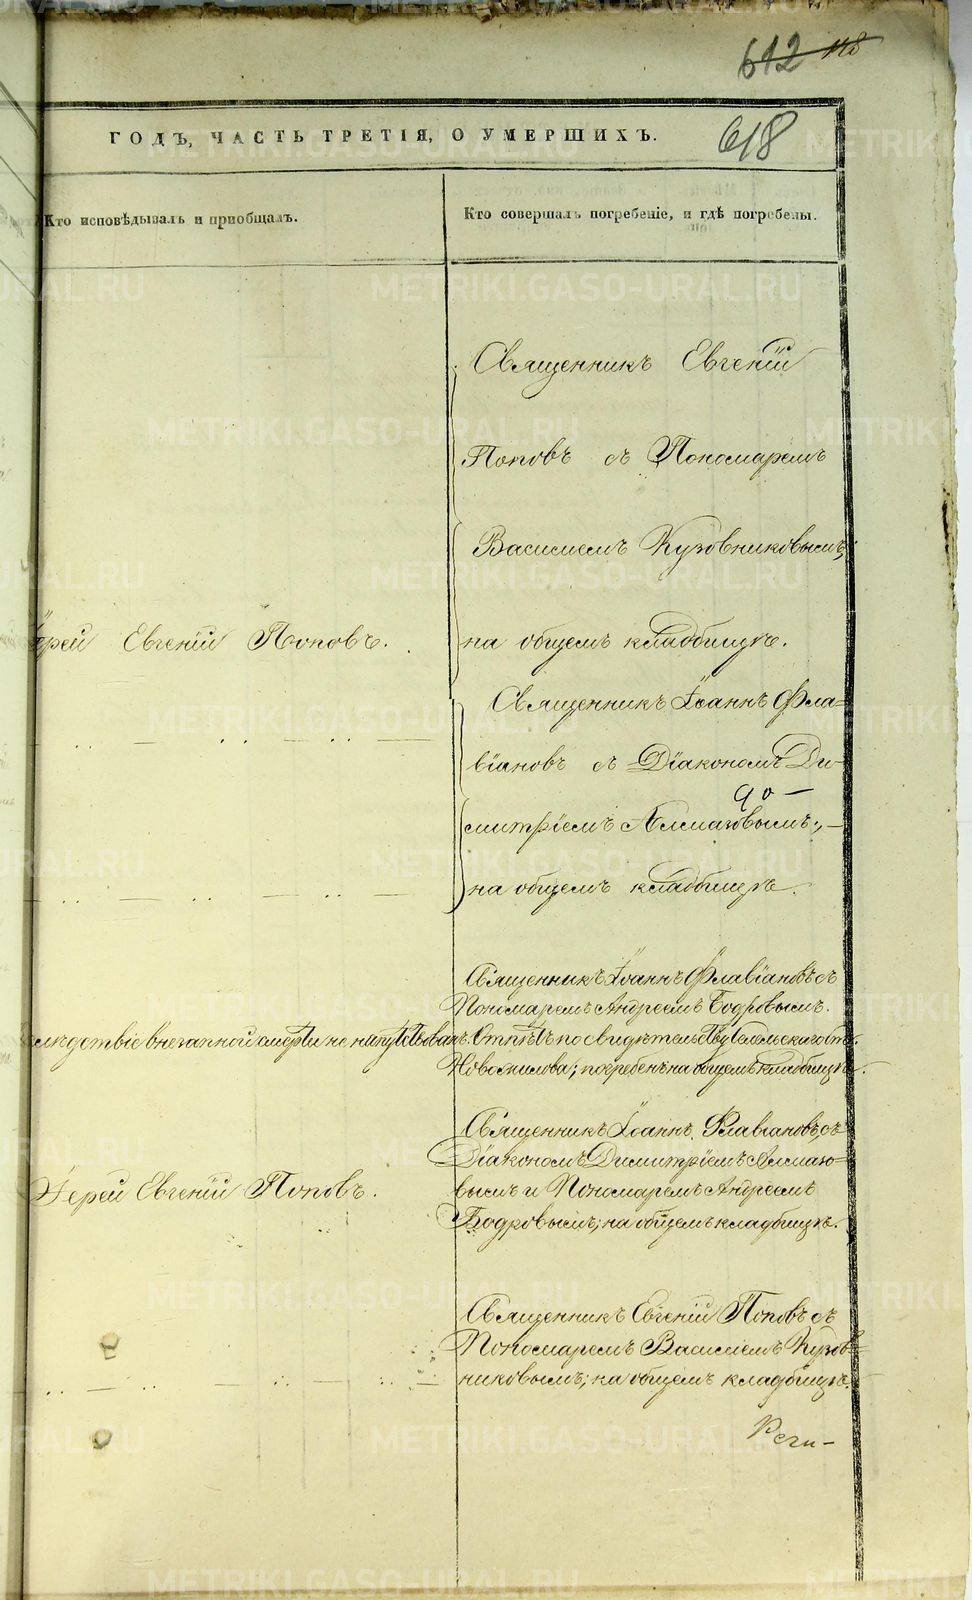 612 118
ГОДЪ, ЧАСТЬ ТРЕТІЯ, О УМЕРШИХЪ. 618
Кто исповѣдывалъ и пріобщалъ.
Кто совершалъ погребеніе, и гдѣ погребены.
Священникъ Евгеній
Поповъ съ Пономаремъ
Василіемъ Кузовниковымъ;
Іерей Евгеній Поповъ.
на общемъ кладбищѣ.
Священникъ Іоаннъ Фла-
віановъ съ Діакономъ Ди-
90 —
митріемъ Алмазовымъ;
на общемъ кладбищѣ.
Священникъ Іоаннъ Флавіановъ съ
Пономаремъ Андреемъ Бодровымъ.
слѣдствіе внезапной смерти не напутствованъ. Отпѣтъ по свидѣтельству
погребенъ на общемъ кладбищѣ.
Священникъ Іоаннъ Флавіановъ съ
Діакономъ Димитріемъ Алмазо-
вымъ и Пономаремъ Андреемъ
Іерей Евгеній Поповъ.
Бодровымъ; на общемъ кладбищѣ.
Священникъ Евгеній Поповъ съ
Пономаремъ Василіемъ Кузов-
никовымъ; на общемъ кладбищѣ.
METRIKI.GASO-URAL.RU